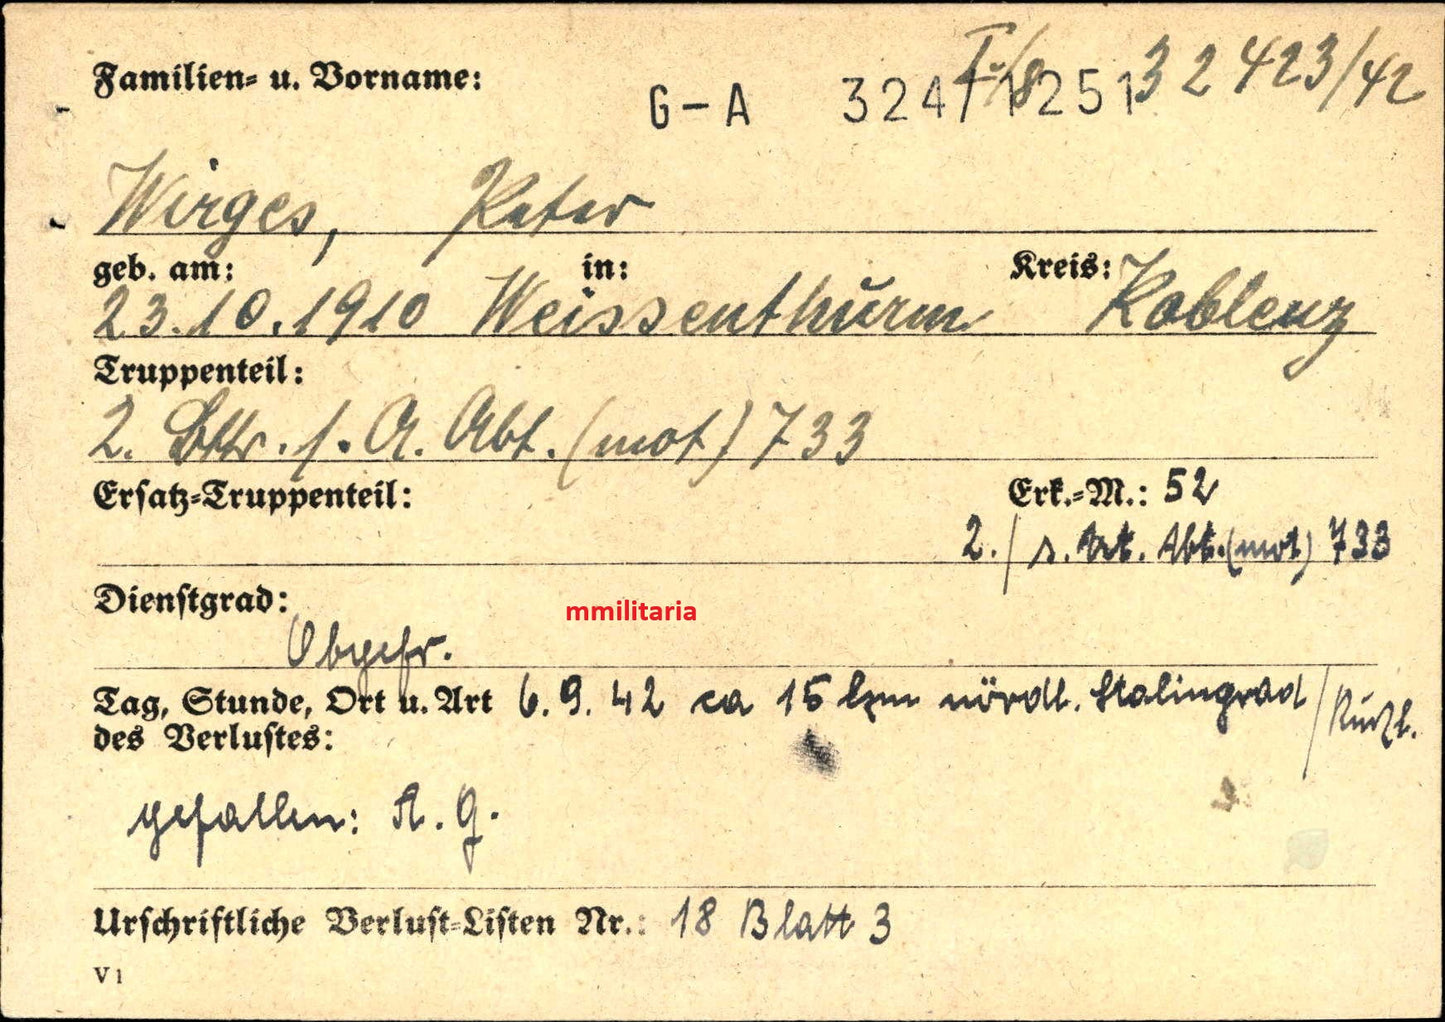 Familien- u. Vorname:
G-A 324/1251
32423/42
Wirges, Peter
geb. am: in: Kreis:
23.10.1910 Weissenthurm Koblenz
Truppenteil:
2. Bttr. s. A. Abt. (mot) 733
Ersatz-Truppenteil: Erk.-M.: 52
2./ s. Art. Abt. (mot) 733
Dienstgrad:
mmilitaria
Obgefr.
Tag, Stunde, Ort u. Art 6.9.42 ca 15 km nördl. Stalingrad
des Verlustes:
gefallen: A. G.
Urschriftliche Verlust-Listen Nr.: 18 Blatt 3
V 1